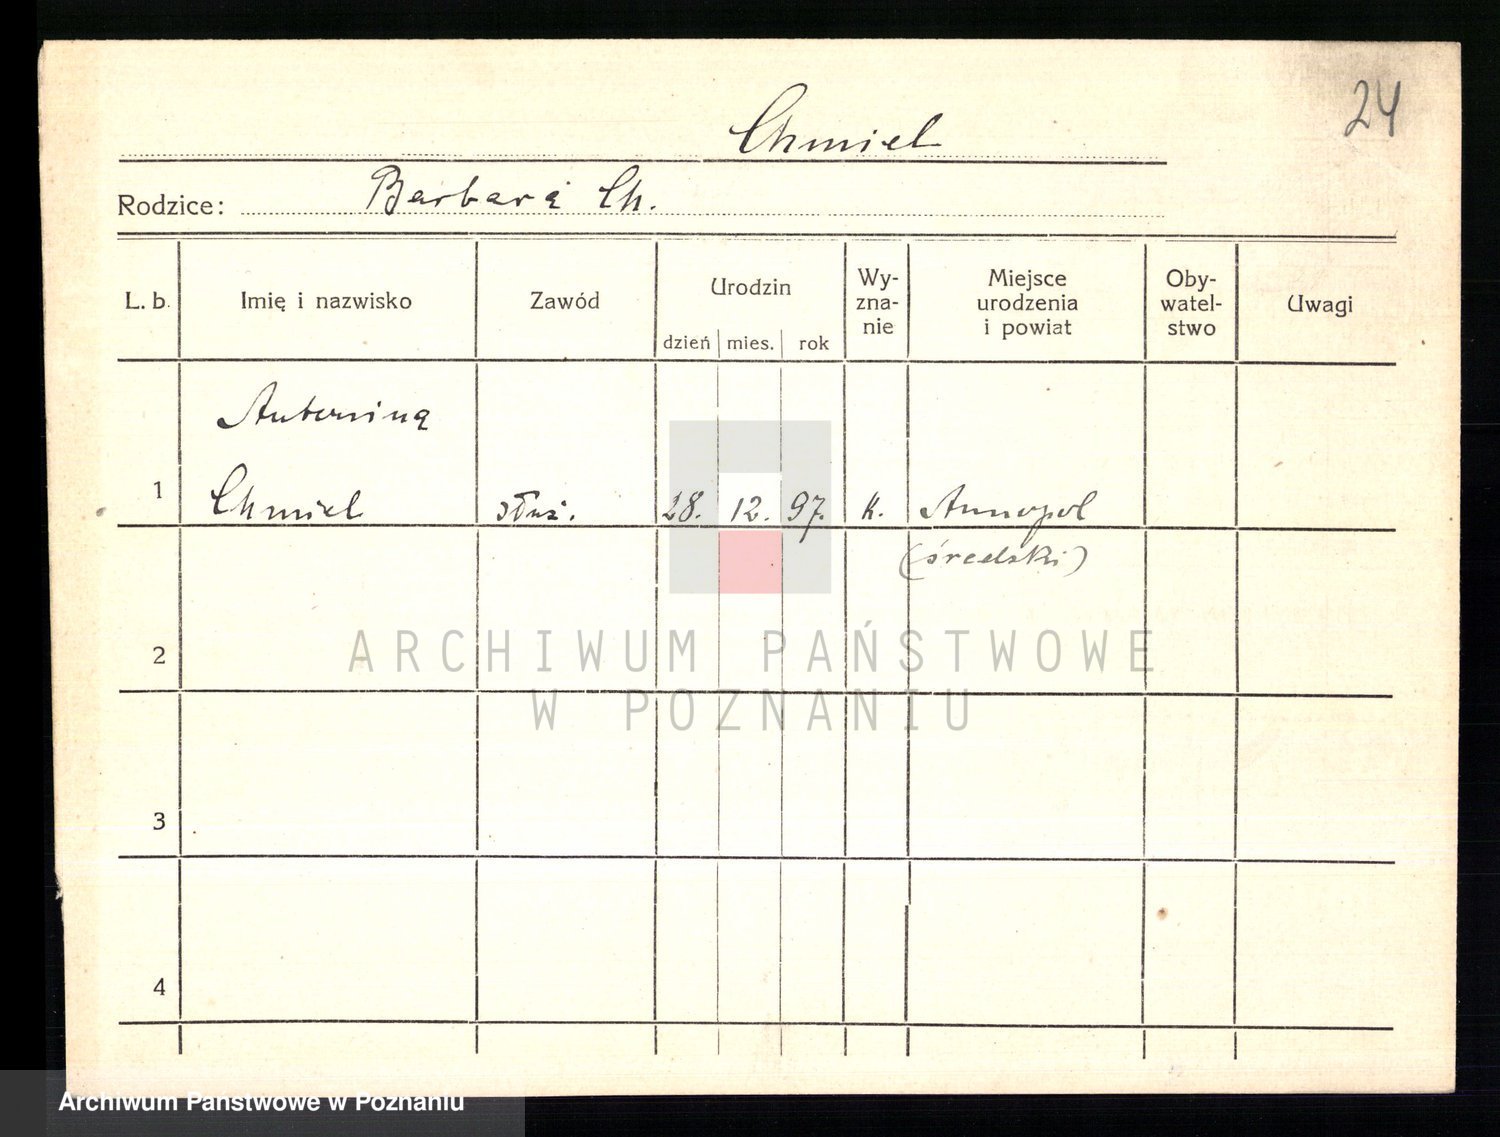 24
Chmiel
Rodzice: Barbara Ch.
L. b. Imię i nazwisko Zawód Urodzin Wy-zna-nie Miejsce urodzenia i powiat Oby-watel-stwo Uwagi
dzień mies. rok
Antonina
1 Chmiel służ. 28. 12. 97. k. Annopol
(średzki)
2
ARCHIWUM PAŃSTWOWE
W POZNANIU
3
4
Archiwum Państwowe w Poznaniu